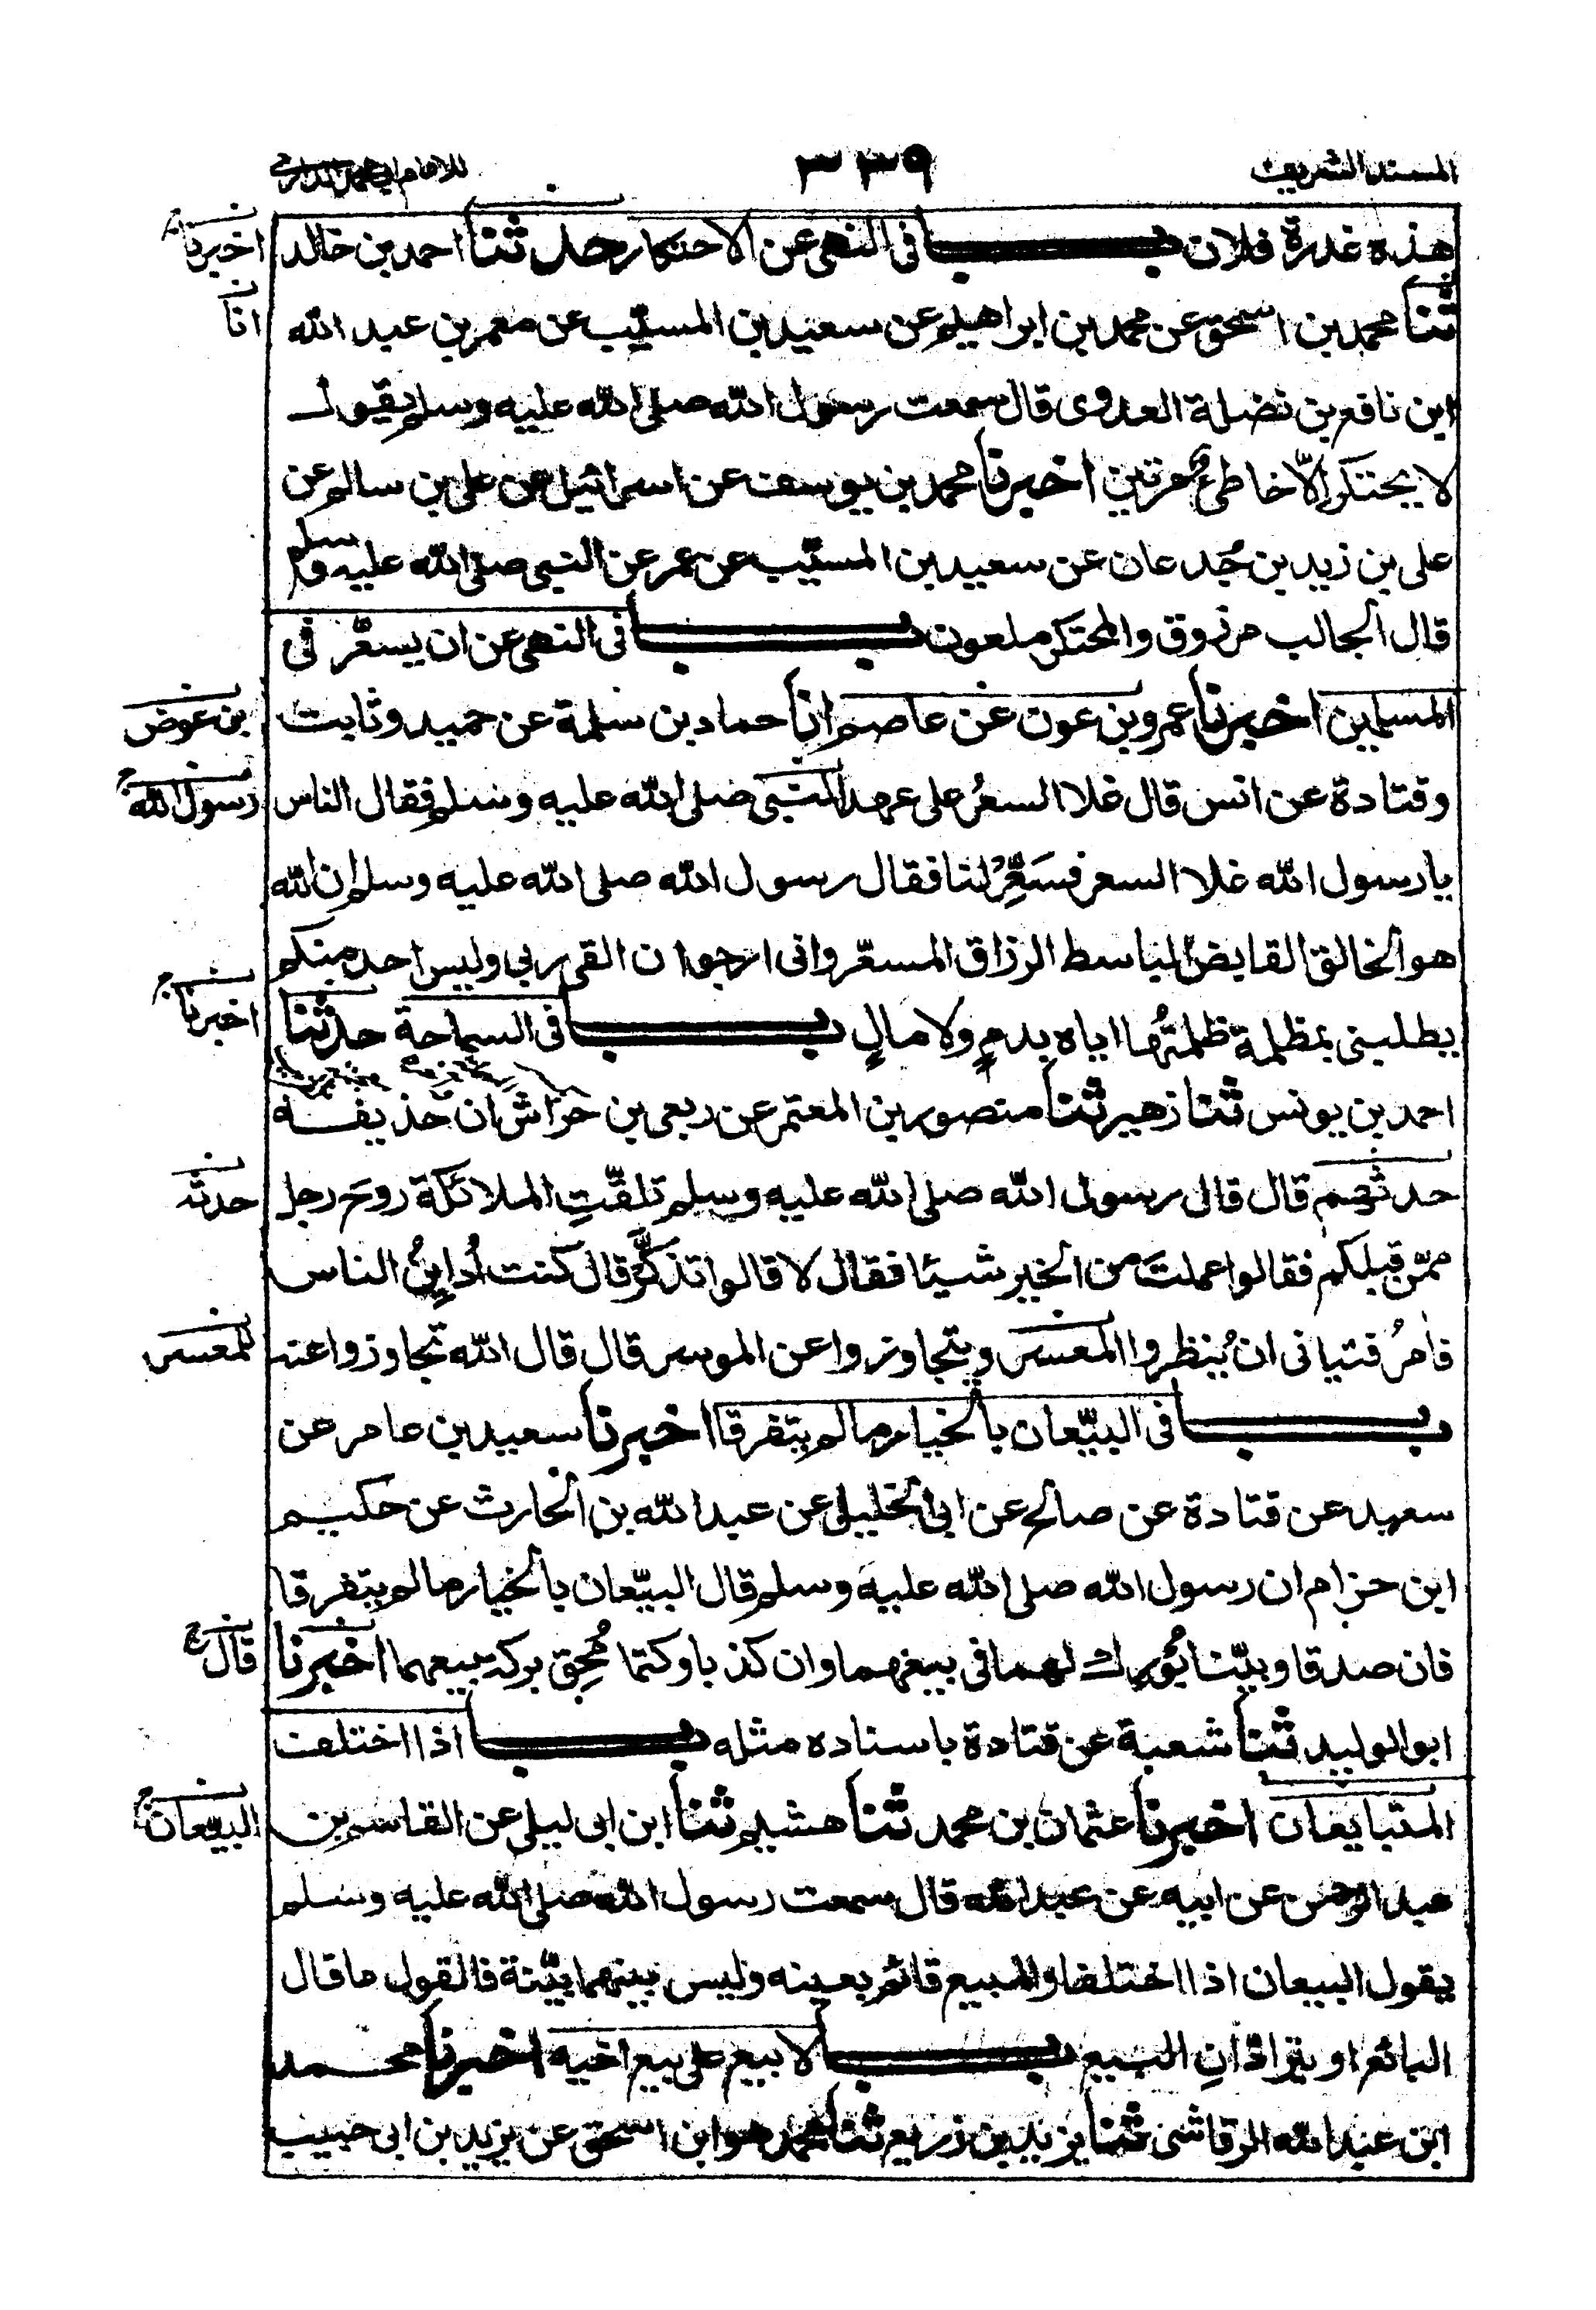 المسند الشريف
٣٣٩
للامام ابي محمد الدارمي
هذه غدرة فلان بــاب فى النهى عن الاحتكار حدثنا احمد بن خالد
اخبرنا
ثنا محمد بن اسحق عن محمد بن ابراهيم عن سعيد بن المسيّب عن معمر بن عبد الله
انا
ابن نافع بن نضلة العدوى قال سمعت رسول الله صلى الله عليه وسلم يقول
لا يحتكر الّا خاطئ مرتين اخبرنا محمد بن يوسف عن اسرائيل عن على بن سالم عن
على بن زيد بن جُدعان عن سعيد بن المسيّب عن عمر عن النبى صلى الله عليه وسلم
قال الجالب مرزوق والمحتكر ملعون بــاب فى النهى عن ان يسعّر فى
المسلمين اخبرنا عمرو بن عون عن عاصم انا حماد بن سلمة عن حميد وثابت
بن عوض
وقتادة عن انس قال غلا السعرُ على عهد النبى صلى الله عليه وسلم فقال الناس
رسول الله
يا رسول الله غلا السعر فسَعِّرْ لنا فقال رسول الله صلى الله عليه وسلم ان الله
هو الخالق القابض الباسط الرزاق المسعّر وانى ارجو ان القى ربي وليس احد منكم
يطلبنى بمظلمة ظلمتُها اياه بدمٍ ولا مالٍ بــاب فى السماحة حدثنا
اخبرنا
احمد بن يونس ثنا زهير ثنا منصور بن المعتمر عن ربعى بن خراش ان حذيفة
حدثهم قال قال رسول الله صلى الله عليه وسلم تلقّتِ الملائكة روحَ رجل
حدثه
ممّن قبلكم فقالوا عملتَ من الخير شيئا فقال لا قالوا تذكّرْ قال كنت اُداينُ الناس
فآمرُ فتيانى ان يُنظروا المعسر ويتجاوزوا عن الموسر قال قال الله تجاوزوا عنه
للمعسر
بــاب فى البيّعان بالخيار ما لم يتفرقا اخبرنا سعيد بن عامر عن
سعيد عن قتادة عن صالح عن ابى الخليل عن عبد الله بن الحارث عن حكيم
ابن حزام ان رسول الله صلى الله عليه وسلم قال البيّعان بالخيار ما لم يتفرقا
فان صدقا وبيّنا بُورك لهما فى بيعهما وان كذبا وكتما مُحِق بركة بيعهما اخبرنا
قال
ابو الوليد ثنا شعبة عن قتادة باسناده مثله بــاب اذا اختلف
المتبايعان اخبرنا عثمان بن محمد ثنا هشيم ثنا ابن ابى ليلى عن القاسم بن
البيّعان
عبد الرحمن عن ابيه عن عبد الله قال سمعت رسول الله صلى الله عليه وسلم
يقول البيعان اذا اختلفا والمبيع قائم بعينه وليس بينهما بيّنة فالقول ما قال
البائع او يترادّانِ البيع بــاب لا يبيع على بيع اخيه اخبرنا محمد
ابن عبد الله الرقاشى ثنا يزيد بن زريع ثنا محمد هو ابن اسحق عن يزيد بن ابى حبيب